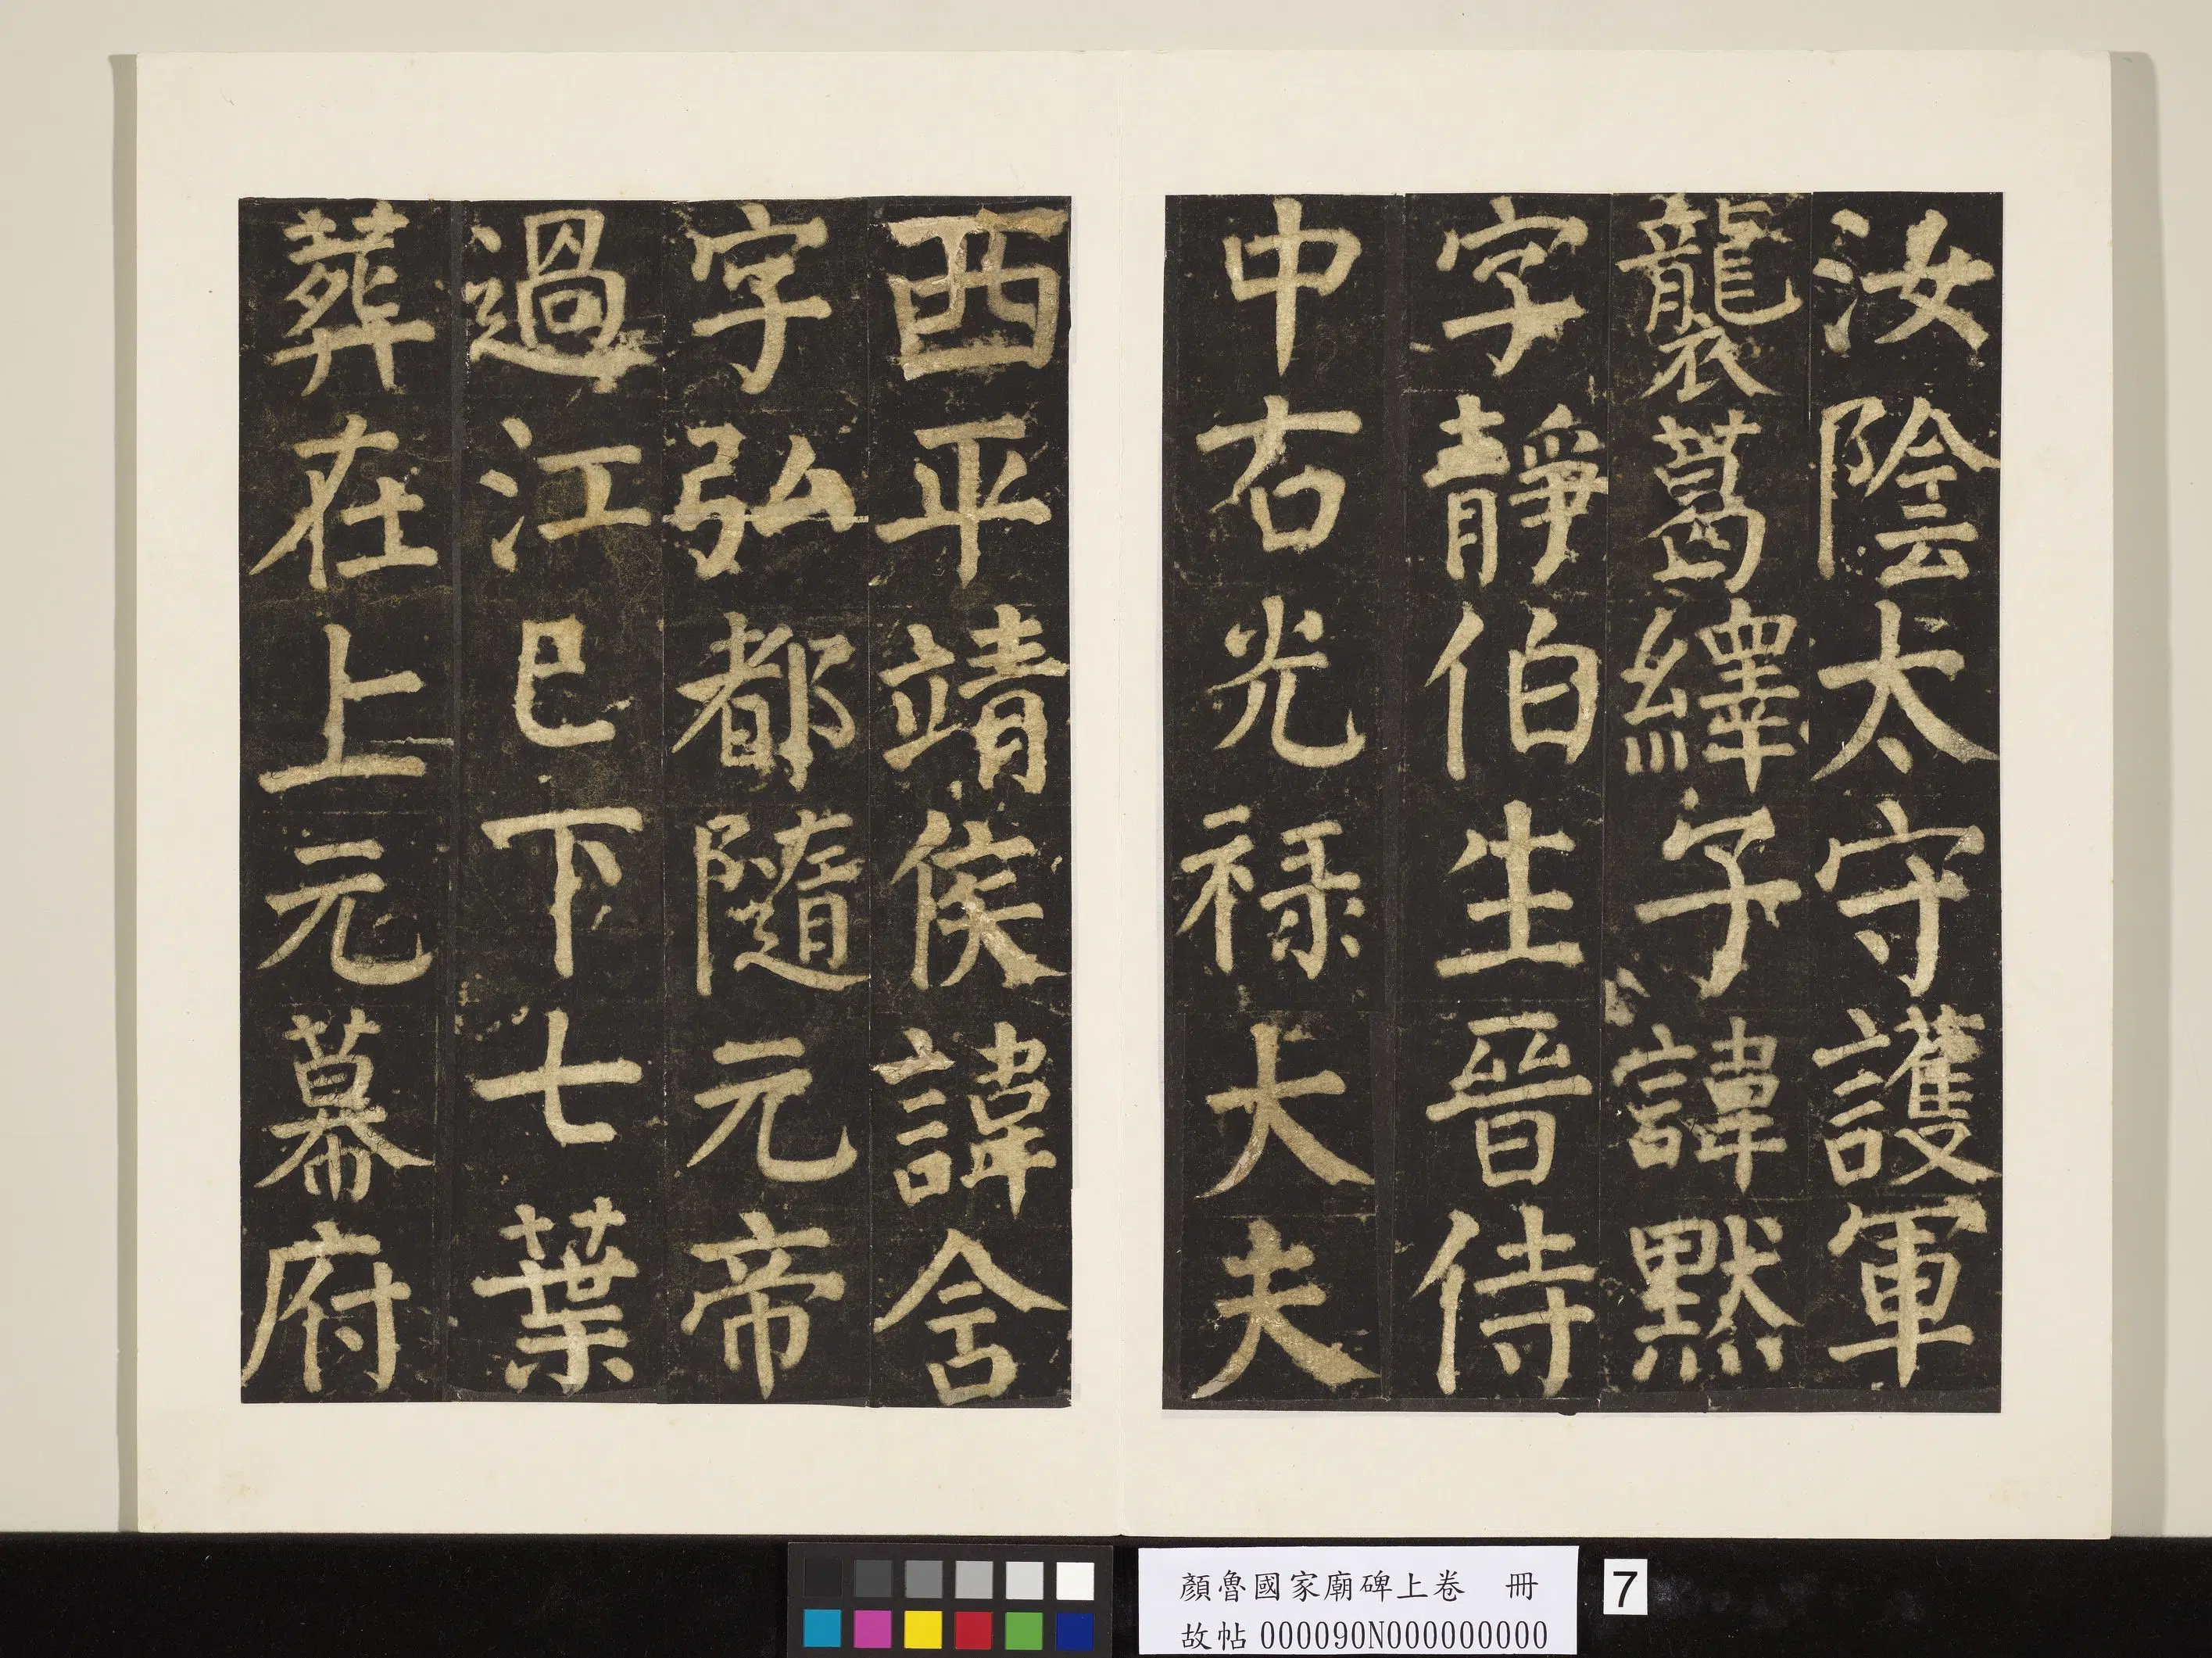 汝陰太守護軍
襲葛繹子諱黙
字靜伯生晉侍
中右光禄大夫
西平靖侯諱含
字弘都隨元帝
過江已下七葉
葬在上元幕府
顏魯國家廟碑上卷 冊
故帖 000090N000000000
7